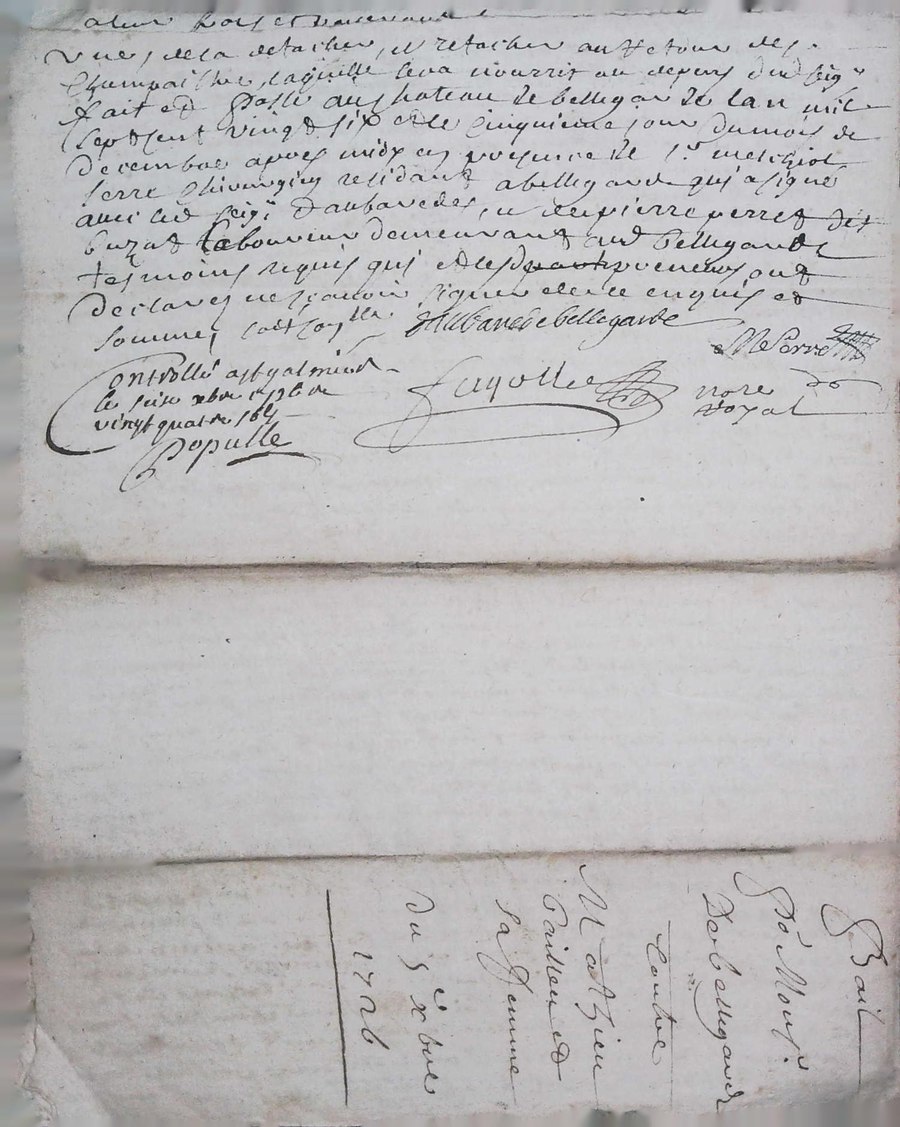 vne, de la detacher, et retacher au retour des
laquelle sera nourrit au depens dud seigr
fait et passé au chateau de bellegarde lan mil
sept cent vingt six et le cinquieme jour du mois de
decembre apres midy en presence de sr melchiol
serre chirurgien residant a bellegarde qui a signé
avec led seigr daubarede, et de pierre perret dit
laboureur demeurant aud bellegarde
tesmoins requis qui et les preneurs ont
declarez ne sçavoir signer de ce enquis et
sommez
daubarede bellegarde
MeSerre
Controllé a st galmier
le seise xbre 1726 R
vingt quatre sols
Populle
fayolle
nore
royal
Bail
Po Monsr
De bellegarde
Contre
Matthieu
et
sa femme
du 5e xbre
1726